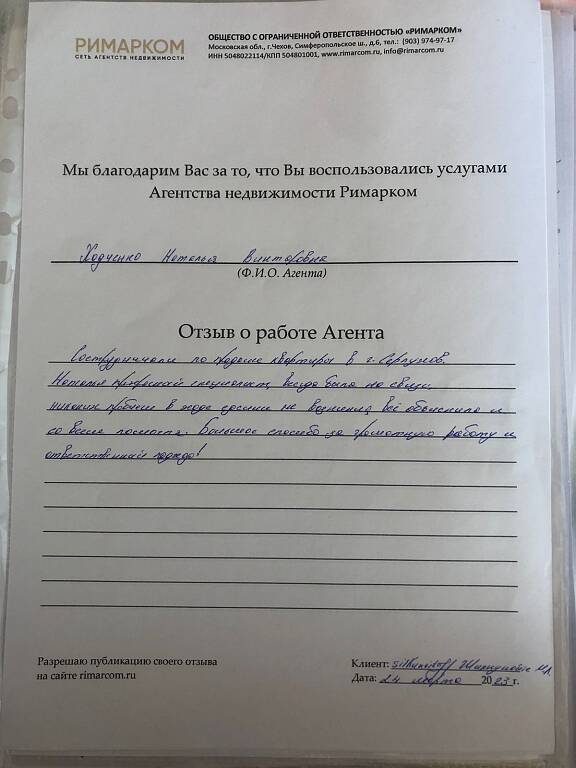 РИМАРКОМ
СЕТЬ АГЕНТСТВ НЕДВИЖИМОСТИ
ОБЩЕСТВО С ОГРАНИЧЕННОЙ ОТВЕТСТВЕННОСТЬЮ «РИМАРКОМ»
Московская обл., г.Чехов, Симферопольское ш., д.6, тел.: (903) 974-97-17
ИНН 5048022114/КПП 504801001, www.rimarcom.ru, info@rimarcom.ru
Мы благодарим Вас за то, что Вы воспользовались услугами
Агентства недвижимости Римарком
Ходченко Наталья Викторовна
(Ф.И.О. Агента)
Отзыв о работе Агента
Сотрудничали по продаже квартиры в г. Серпухов.
Наталья прекрасный специалист, всегда была на связи,
никаких проблем в ходе сделки не возникло, всё объяснила и
во всем помогла. Большое спасибо за грамотную работу и
ответственный подход!
Разрешаю публикацию своего отзыва
на сайте rimarcom.ru
Клиент:
Дата: 24 марта 2023 г.